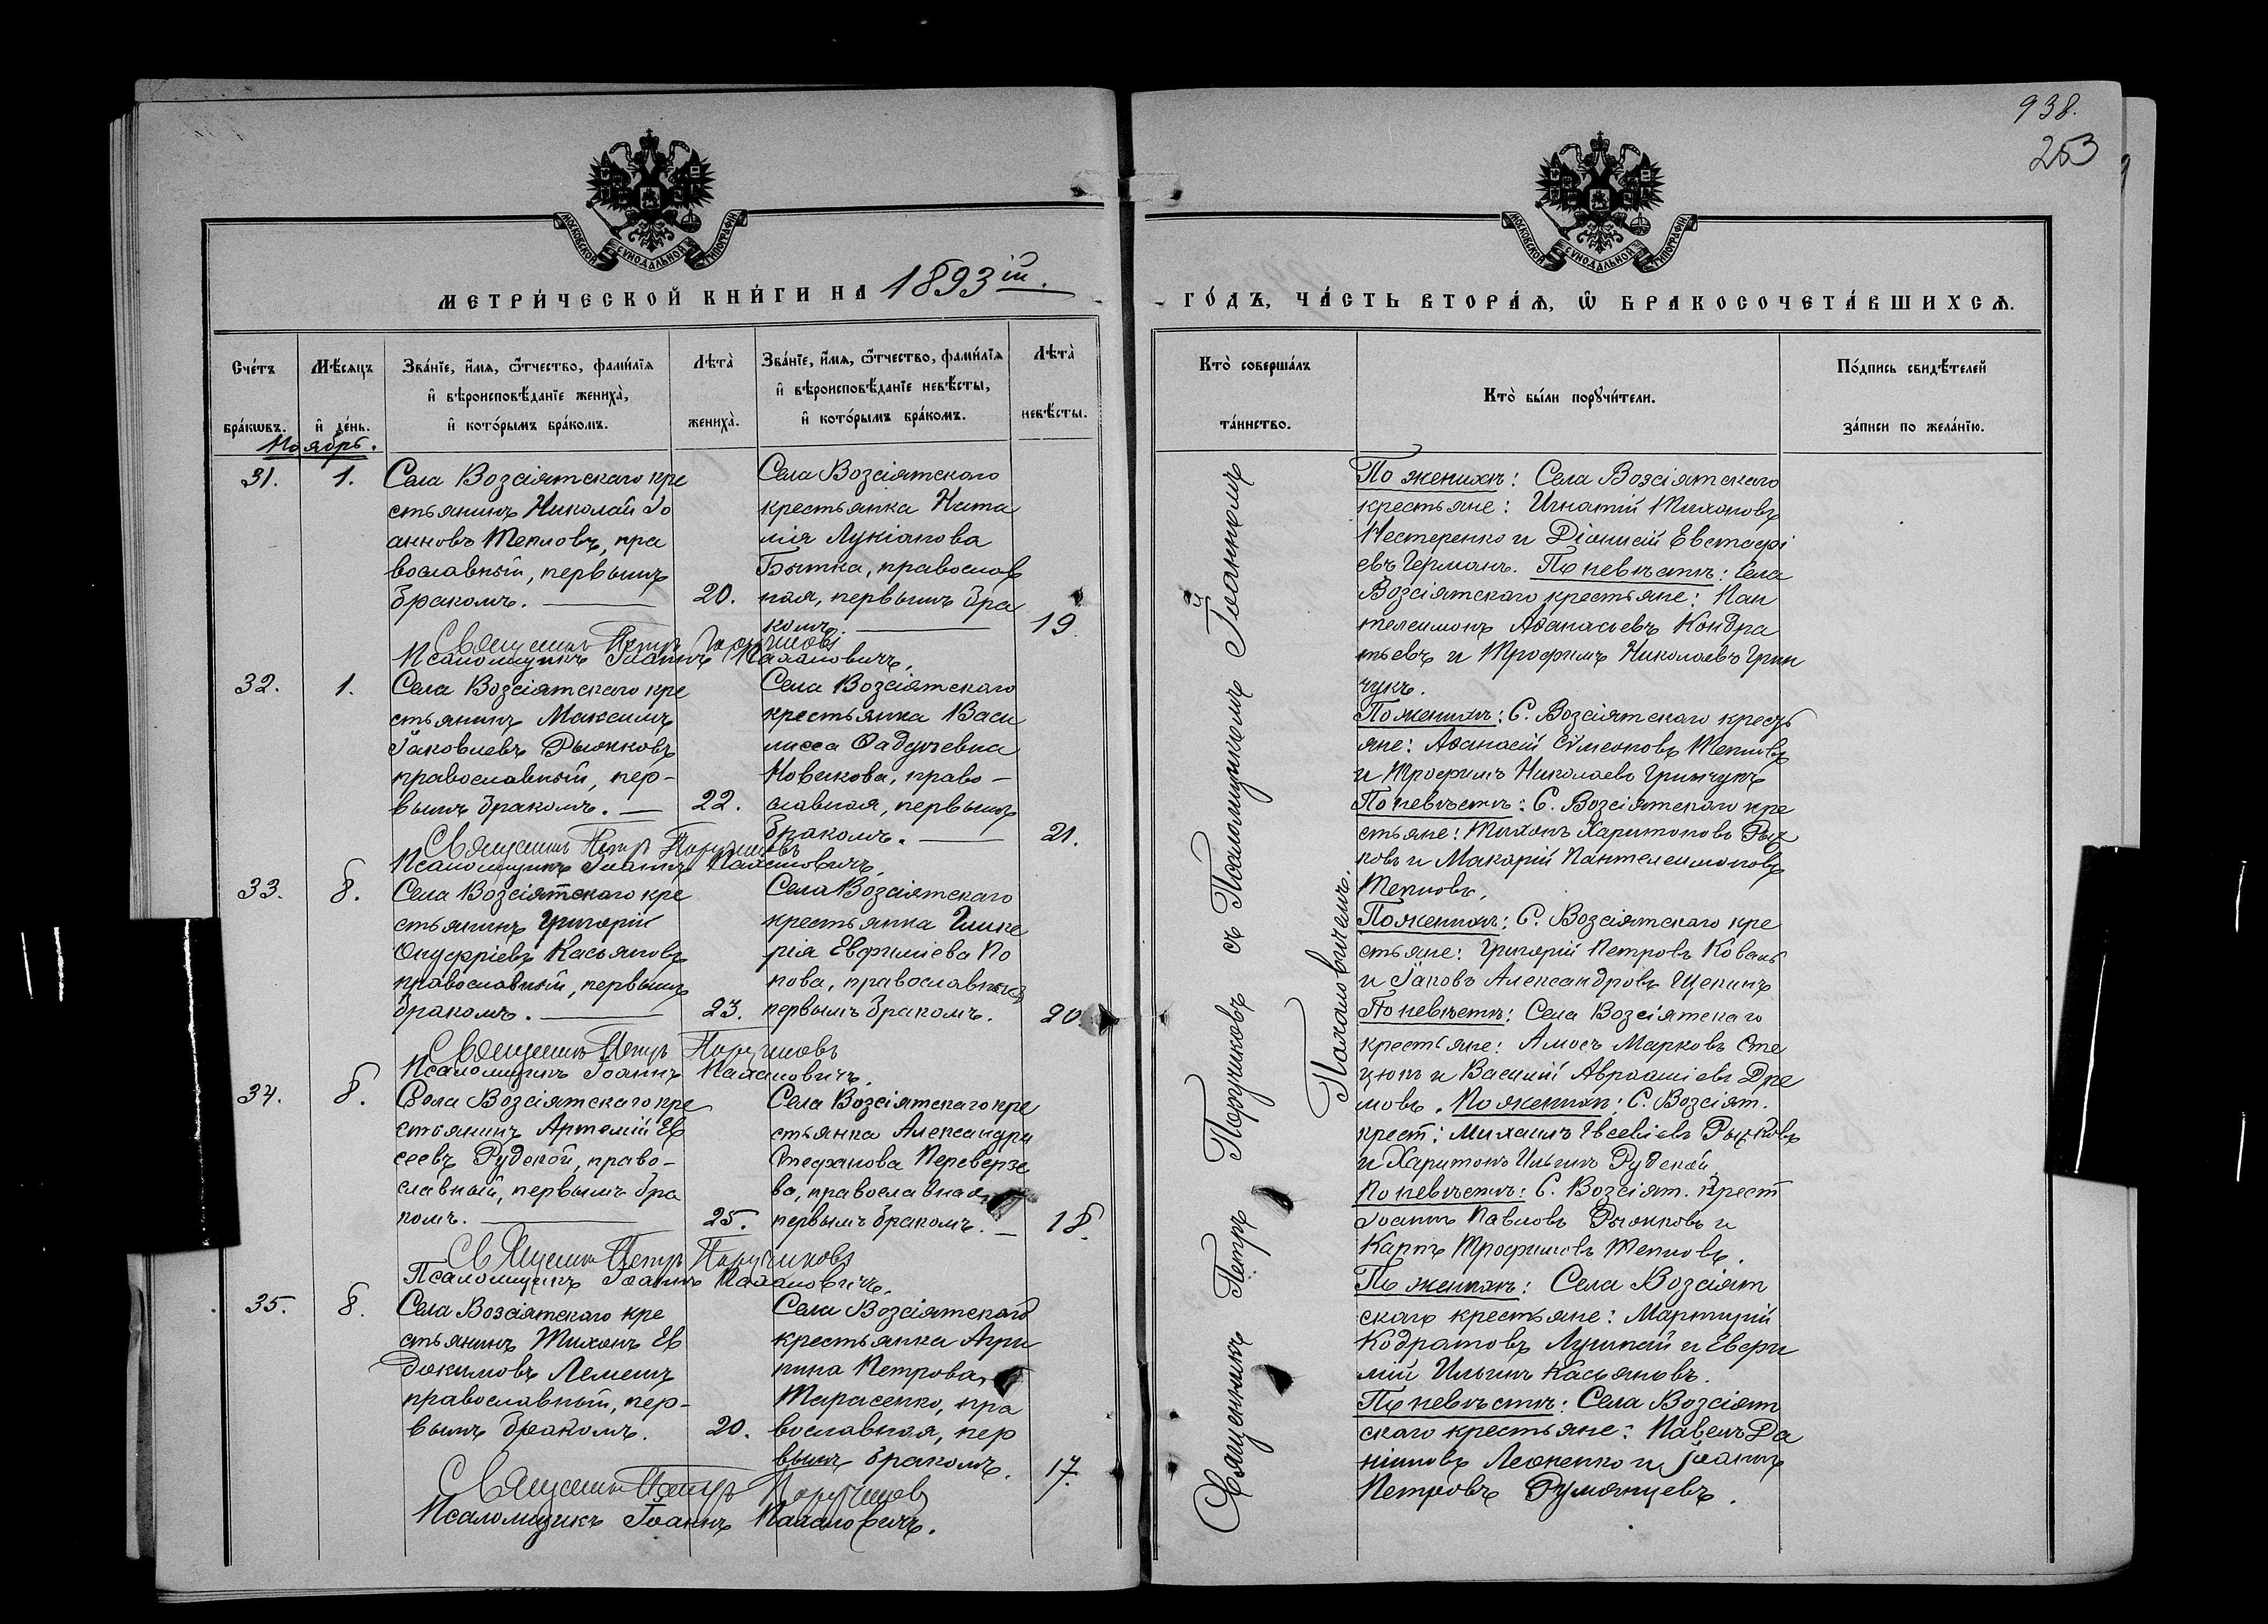 938.
253
МОСКОВСКОЙ СУНОДАЛЬНОЙ ТИПОГРАФІИ
МЕТРИ́ЧЕСКОЙ КНИ́ГИ НА 1893ій.
Сче́тъ бра́кѡвъ.
Мѣ́сяцъ и҆ де́нь.
Зва́нїе, и҆́мѧ, ѻ҆́тчество, фами́лїѧ
и҆ вѣроисповѣ́данїе жениха̀,
и҆ кото́рымъ бра́комъ.
Лѣта̀ жениха̀.
Зва́нїе, и҆́мѧ, ѻ҆́тчество, фами́лїѧ
и҆ вѣроисповѣ́данїе невѣ́сты,
и҆ кото́рымъ бра́комъ.
Лѣта̀ невѣ́сты.
Ноябрь.
31.
1.
Села Возсіятскаго кре
стьянинъ Николай Іо
анновъ Тепловъ, пра
вославный, первымъ
бракомъ.
20.
Села Возсіятскаго
крестьянка Ната
лія Лукіанова
Бытка, православ
ная, первымъ бра
комъ.
19.
Священникъ Петръ Поручиковъ
Псаломщикъ Іоаннъ Палановичъ.
32.
1.
Села Возсіятскаго кре
стьянинъ Максимъ
Іаковлевъ Рыжковъ
православный, пер-
вымъ бракомъ.
22.
Села Возсіятскаго
крестьянка Васи
лисса Фаддеевна
Новикова, право-
славная, первымъ
бракомъ.
21.
Священникъ Петръ Поручиковъ
Псаломщикъ Іоаннъ Палановичъ.
33.
8.
Села Возсіятскаго кре
стьянинъ Григорій
Онуфріевъ Касьяновъ
православный, первымъ
бракомъ.
23.
Села Возсіятскаго
крестьянка Глике
рія Евфиміева По
пова, православная
первымъ бракомъ.
20.
Священникъ Петръ Поручиковъ
Псаломщикъ Іоаннъ Палановичъ.
34.
8.
Села Возсіятскаго кре
стьянинъ Артемій Ев
сеевъ Рудской, право-
славный, первымъ бра
комъ.
25.
Села Возсіятскаго кре
стьянка Александра
Стефанова Переверзе
ва, православная,
первымъ бракомъ.
18.
Священникъ Петръ Поручиковъ
Псаломщикъ Іоаннъ Палановичъ.
35.
8.
Села Возсіятскаго кре
стьянинъ Тихонъ Ев
докимовъ Лемешъ
православный, пер-
вымъ бракомъ.
20.
Села Возсіятскаго
крестьянка Агри
пина Петрова,
Тарасенко, пра
вославная, пер
вымъ бракомъ.
17.
Священникъ Петръ Поручиковъ
Псаломщикъ Іоаннъ Палановичъ.
МОСКОВСКОЙ СУНОДАЛЬНОЙ ТИПОГРАФІИ
ГО́ДЪ, ЧА́СТЬ ВТОРА́Ѧ, Ѡ҆ БРАКОСОЧЕТА́ВШИХСѦ.
Кто̀ соверша́лъ та́инство.
Кто̀ бы́ли порꙋчи́тели.
По́дпись свидѣ́телей за́писи по жела́нїю.
Священникъ Петръ Поручиковъ съ Псаломщикомъ Іоанномъ
Палановичемъ.
По женихѣ: Села Возсіятскаго
крестьяне: Игнатій Тихоновъ
Нестеренко и Діонисій Евстафі
евъ Германъ. По невѣстѣ: Села
Возсіятскаго крестьяне: Пан
телеимонъ Аѳанасьевъ Кондра
тьевъ и Трофимъ Николаевъ Грин
чукъ.
По женихѣ: С. Возсіятскаго кресть
яне: Аѳанасій Сѵмеоновъ Тепловъ
и Трофимъ Николаевъ Гринчукъ
По невѣстѣ: С. Возсіятскаго кре
стьяне: Тихонъ Харитоновъ Рыж
ковъ и Макарій Пантелеимоновъ
Тепловъ,
По женихѣ: С. Возсіятскаго кре
стьяне: Григорій Петровъ Коваль
и Іаковъ Александровъ Щекинъ
По невѣстѣ: Села Возсіятскаго
крестьяне: Амосъ Марковъ Сте
цюкъ и Василій Авраамієвъ Дре
мовъ. По женихѣ: С. Возсіят.
крест: Михаилъ Евсевіевъ Рыжковъ
и Харитонъ Ильинъ Рудской.
По невѣстѣ: С. Возсіят. крест
Іоаннъ Павловъ Рыжковъ и
Карпъ Трофимовъ Тепловъ.
По женихѣ: Села Возсіят
скаго крестьяне: Мартирій
Кодратовъ Лушпай и Еверн
мій Ильинъ Касьяновъ.
По невѣстѣ: Села Возсіят
скаго крестьяне: Павелъ Да
ніиловъ Леоненко и Іоаннъ
Петровъ Румянцевъ.